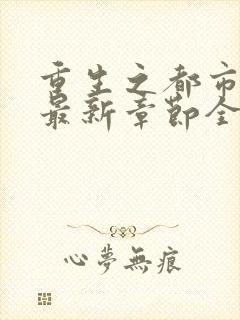 重生之都市
最新章节全
心夢無痕